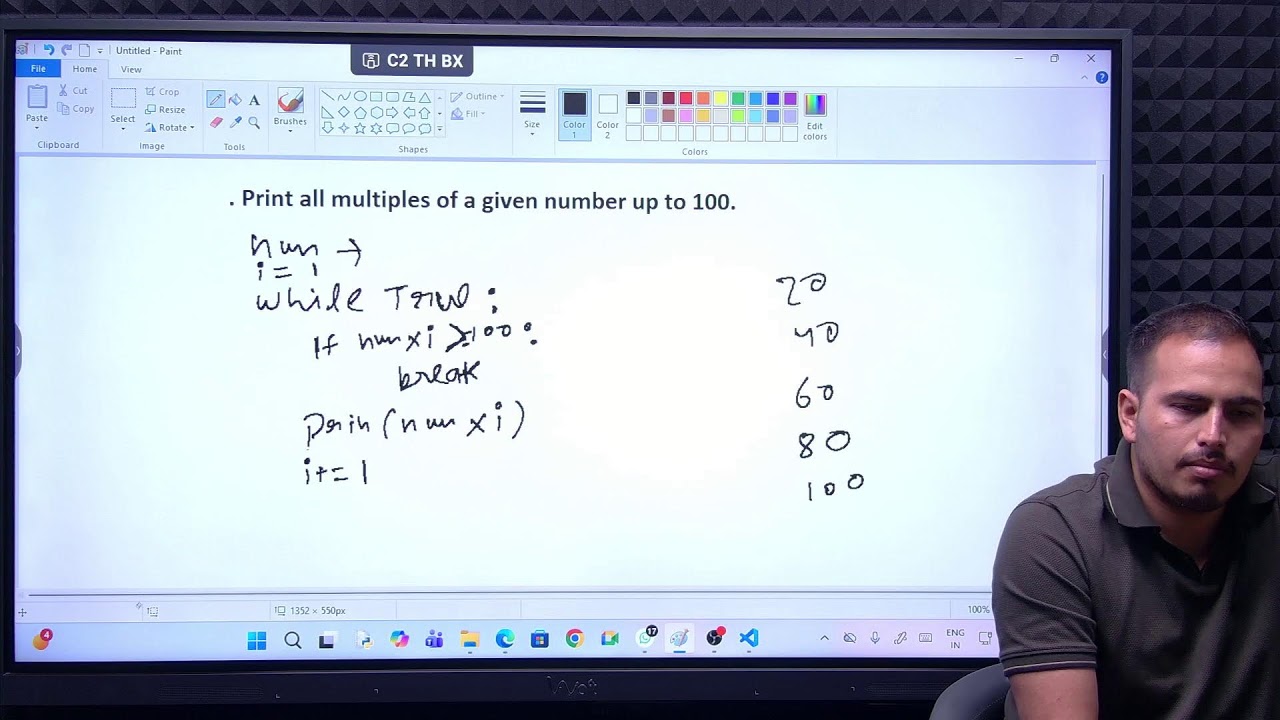 Untitled - Paint
C2 TH BX
File Home View
Paste Cut Copy Clipboard
Select Crop Resize Rotate Image
Tools
Brushes
Shapes
Outline Fill
Size
Color 1 Color 2
Edit colors
Colors
. Print all multiples of a given number up to 100.
num →
i = 1
while True :
If num x i >100 :
break
Prin (num x i)
i+= 1
20
40
60
80
100
1352 × 550px
100%
4
17
ENG
IN